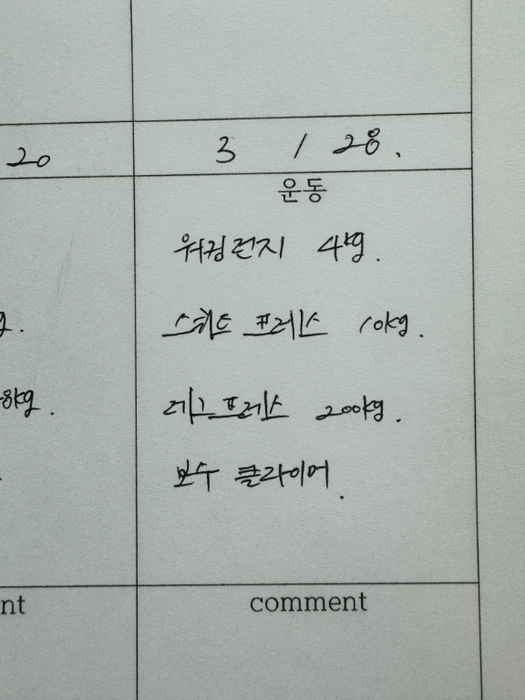 20
3 / 28.
운동
워킹런지 4kg.
g.
스쿼트 프레스 10kg.
8kg.
레그프레스 200kg.
보수 클라이머.
nt
comment